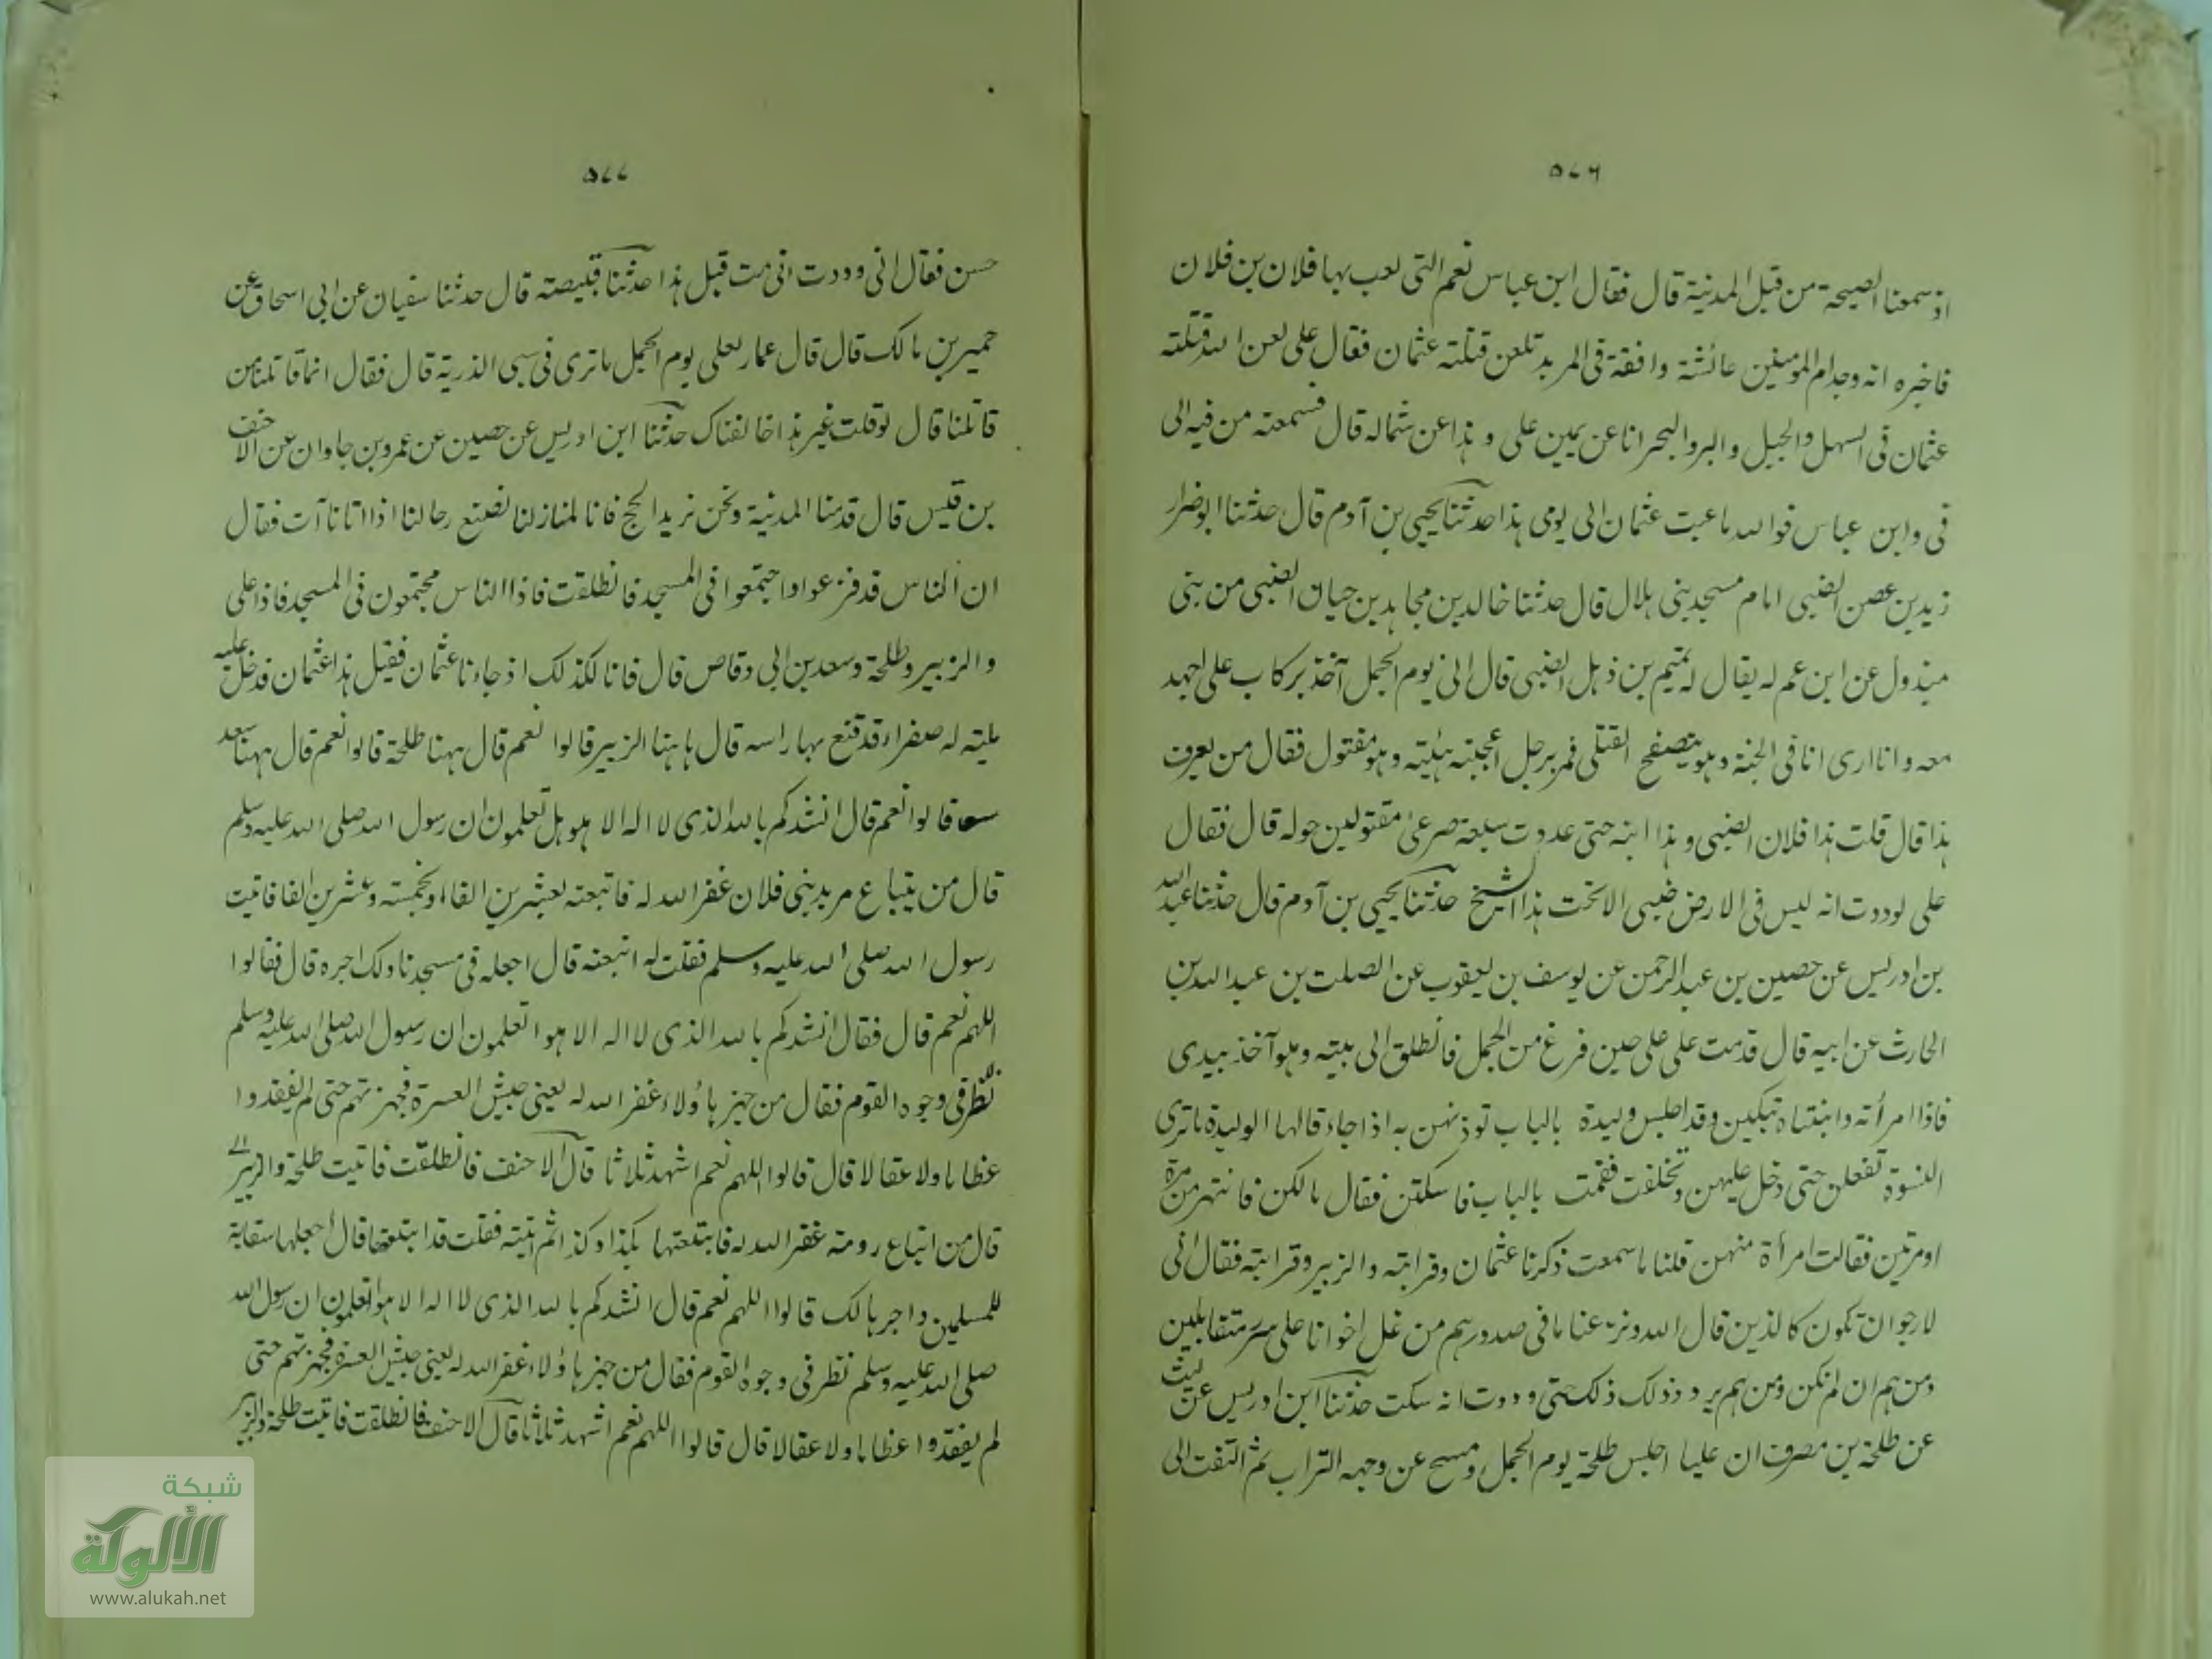 ٥٧٦
اذ سمعنا الصيحة من قبل المدنية قال فقال ابن عباس نعم التى لعب بها فلان بن فلان
فاخبره انه وجد ام المومنين عائشة وافقة فى المربد تلعن قتلته عثمان فقال على لعن الله قتلته
عثمان فى السهل والجبل والبر والبحر انا عن يمين على وهذا عن شماله قال فسمعته من فيه الى
فى وابن عباس فوالله ما عبت عثمان الى يومى هذا حدثنا يحيى بن آدم قال حدثنا ابو ضرار
زيد بن عصن الضبى امام مسجد بنى هلال قال حدثنا خالد بن مجاهد بن حيان الضبى من بنى
مبذول عن ابن عم له يقال له تميم بن ذهل الضبى قال انى يوم الجمل آخذ بركاب على اجهد
معه وانا ارى انا فى الجنة وهو يتصفح القتلى فمر برجل اعجبته هيئته وهو مقتول فقال من يعرف
هذا قال قلت هذا فلان الضبى وهذا ابنه حتى عددت سبعة صرعى مقتولين حوله قال فقال
على لوددت انه ليس فى الارض ضبى الا تحت هذا الشيخ حدثنا يحيى بن آدم قال حدثنا عبد الله
بن ادريس عن حصين بن عبد الرحمن عن يوسف بن يعقوب عن الصلت بن عبد الله بن
الحارث عن ابيه قال قدمت على على حين فرغ من الجمل فانطلق الى بيته وهو آخذ بيدى
فاذا امرأته وابنتاه تبكين وقد اجلس وليدة بالباب توذنهن به اذا جاء قالها الوليدة ماترى
النسوة تفعلن حتى دخل عليهن وتخلفت فقمت بالباب فاسكتن فقال مالكن فانتهرهن مرة
اومرتين فقالت امرأة منهن قلنا ماسمعت ذكرنا عثمان وقرابته والزبير وقرابته فقال انى
لارجو ان تكون كالذين قال الله ونزعنا ما فى صدورهم من غل اخوانا على سرر متقابلين
ومن هم ان لم نكن ومن هم يردد ذلك ذلك حتى وددت انه سكت حدثنا ابن ادريس عن ليث
عن طلحة بن مصرف ان عليا اجلس طلحة يوم الجمل ومسح عن وجهه التراب ثم التفت الى
٥٧٧
حسن فقال انى وددت انى مت قبل هذا حدثنا قبيصته قال حدثنا سفيان عن ابى اسحاق عن
حمير بن مالك قال قال عمار لعلى يوم الجمل ماترى فى سبى الذرية قال فقال انما قاتلنا من
قاتلنا قال لوقلت غير هذا خالفناك حدثنا ابن ادريس عن حصين عن عمرو بن جاوان عن الاحنف
بن قيس قال قدمنا المدنية ونحن نريد الحج فانا لمنازلنا نصنع رحالنا اذا اتانا آت فقال
ان الناس قد فزعوا واجتمعوا فى المسجد فانطلقت فاذا الناس مجتمعون فى المسجد فاذا على
والزبير وطلحة وسعد بن ابى وقاص قال فانا لكذلك اذ جاءنا عثمان فقيل هذا عثمان قد دخل عليه
مليته له صفراء قد قنع بها راسه قال هاهنا الزبير قالوا نعم قال ههنا طلحة قالوا نعم قال ههنا سعد
قالوا نعم قال انشدكم بالله الذى لا اله الا هو هل تعلمون ان رسول الله صلى الله عليه وسلم
قال من يتباع مربد بنى فلان غفر الله له فاتبعته بعشرين الفا او بخمسته وعشرين الفا فاتيت
رسول الله صلى الله عليه وسلم فقلت له اتبعته قال اجعله فى مسجدنا ولك اجره قال فقالوا
اللهم نعم قال فقال انشدكم بالله الذى لا اله الا هو اتعلمون ان رسول الله صلى الله عليه وسلم
نظر فى وجوه القوم فقال من جهز هاؤلاء غفر الله له يعنى جيش العسرة فجهزتهم حتى لم يفقدوا
عظاما ولا عقالا قال قالوا اللهم نعم اشهد ثلاثا قال الاحنف فانطلقت فاتيت طلحة والزبير
قال من اتباع رومة غفر الله له فابتعتها بكذا وكذا ثم اتيته فقلت قد ابتعتها قال اجعلها سقاية
للمسلمين واجرها لك قالوا اللهم نعم قال انشدكم بالله الذى لا اله الا هو اتعلمون ان رسول الله
صلى الله عليه وسلم نظر فى وجوه القوم فقال من جهز هاؤلاء غفر الله له يعنى جيش العسرة فجهزتهم حتى
لم يفقدوا عظاما ولا عقالا قال قالوا اللهم نعم اشهد ثلاثا قال الاحنف فانطلقت فاتيت طلحة والزبير
شبكة
الألوكة
www.alukah.net